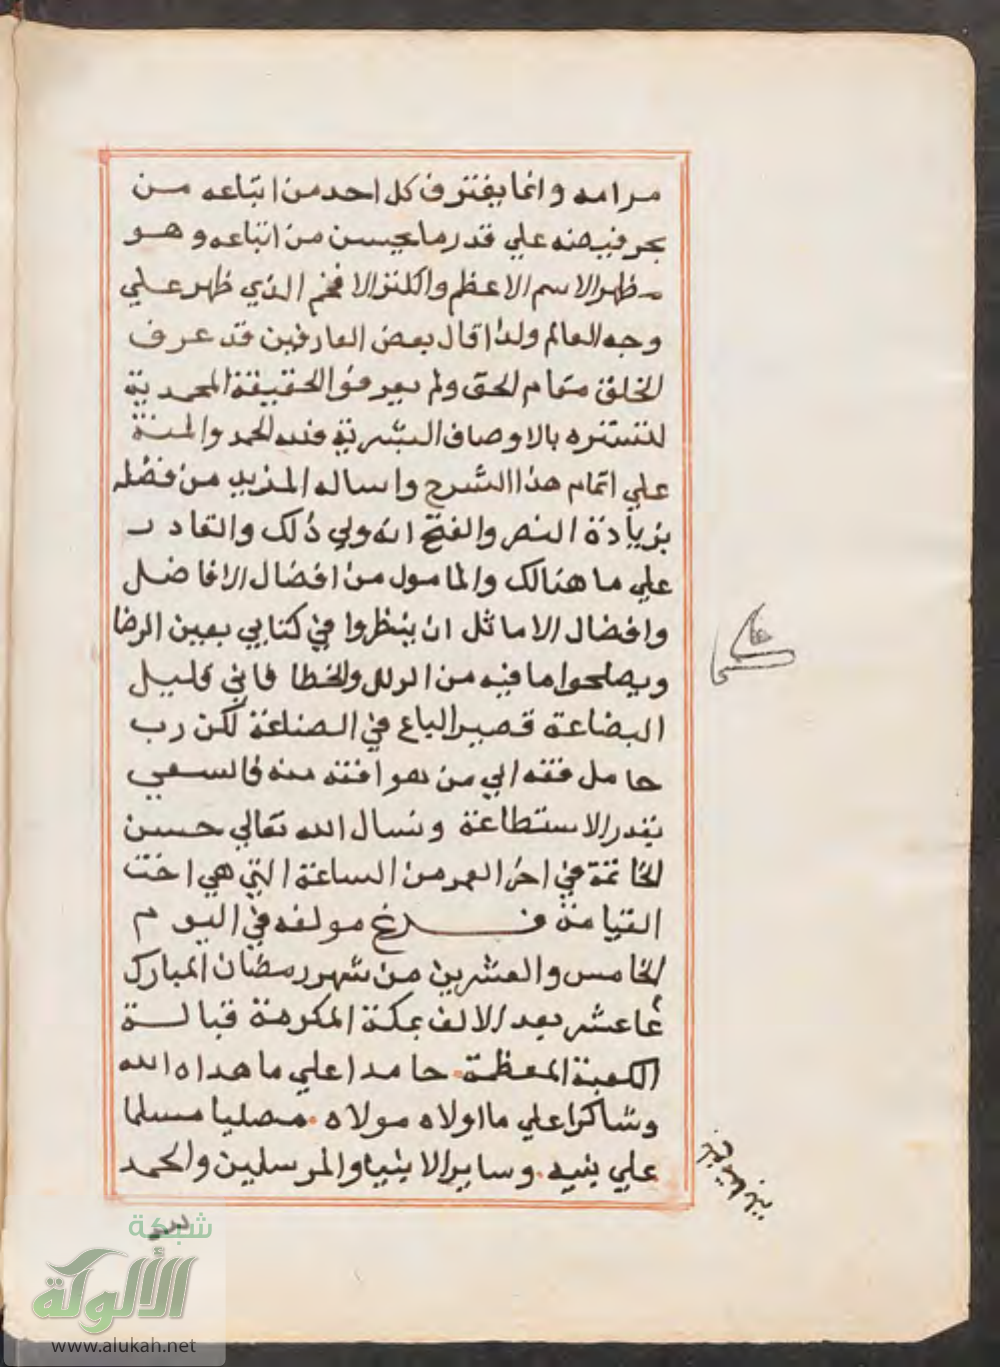 مرامه وانما يغترف كل احد من اتباعه من
بحر فيضه علي قدر ما يحسن من اتباعه وهو
مظهر الاسم الاعظم والكنز الافخم الذي ظهر علي
وجه العالم ولذا قال بعض العارفين قد عرف
الخلق مقام الحق ولم يعرفوا الحقيقة المحمدية
لتستره بالاوصاف البشرية فلله الحمد والمنة
علي اتمام هذا الشرح واساله المزيد من فضله
بزيادة النصر والفتح انه ولي ذلك والقادر
علي ما هنالك والمامول من افضال الافاضل
وافضال الاماثل ان ينظروا في كتابي بعين الرضا
ويصلحوا ما فيه من الزلل والخطا فاني قليل
البضاعة قصير الباع في الصناعة لكن رب
حامل فقه الي من هو افقه منه فالسعي
بقدر الاستطاعة ونسال الله تعالي حسن
الخاتمة في اخر العمر من الساعة التي هي اخت
القيامة فرغ مولفه في اليوم
الخامس والعشرين من شهر رمضان المبارك
عاعشر بعد الالف بمكة المكرمة قبالة
الكعبة المعظمة حامدا علي ما هداه الله
وشاكرا علي ما اولاه مولاه مصليا مسلما
علي نبيه وساير الانبيا والمرسلين والحمد
شبكة
الألوكة
www.alukah.net